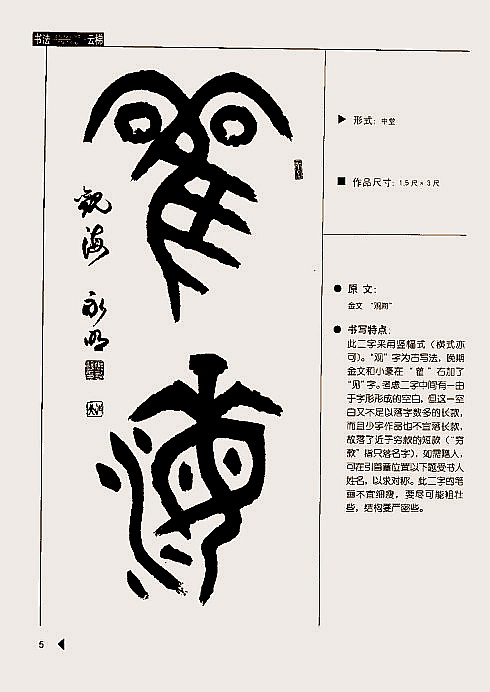 书法 云梯
觀海
永明
形式：中堂
作品尺寸：1.5尺×3尺
原文：
金文 “观海”
书写特点：
此二字采用竖幅式（横式亦
可）。“观”字为古写法，晚期
金文和小篆在“雚”右加了
“见”字。考虑二字中间有一由
于字形形成的空白，但这一空
白又不足以落字数多的长款，
而且少字作品也不宜落长款，
故落了近于穷款的短款（“穷
款”指只落名字），如需赠人，
可在引首章位置以下题受书人
姓名，以求对称。此二字的笔
画不宜细瘦，要尽可能粗壮
些，结构要严密些。
5